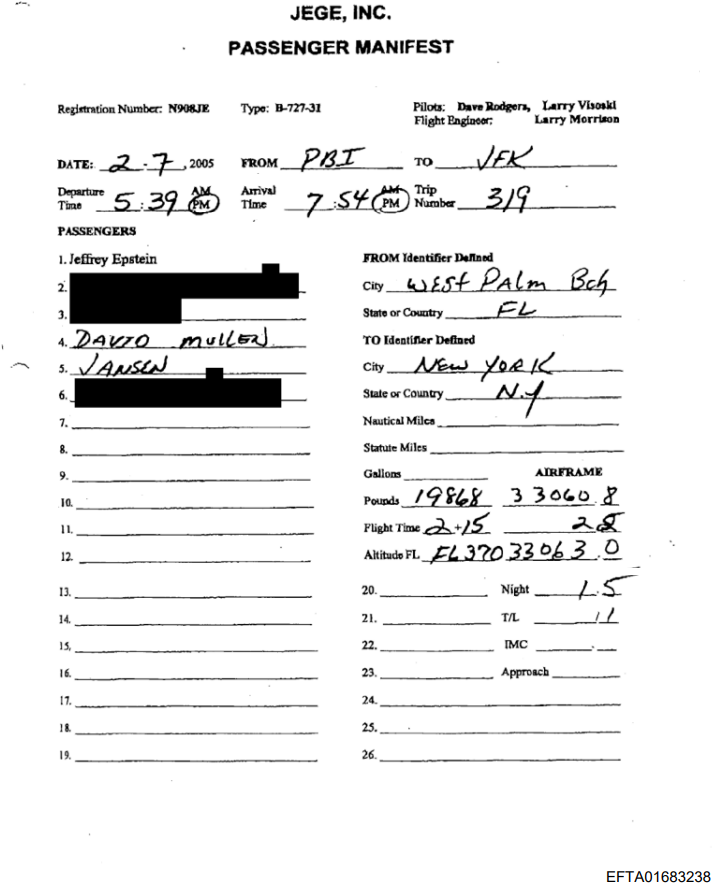 JEGE, INC.
PASSENGER MANIFEST
Registration Number: N908JE Type: B-727-31 Pilots: Dave Rodgers, Larry Visoski
Flight Engineer: Larry Morrison
DATE: 2-7, 2005 FROM PBI TO JFK
Departure Time 5:39 AM PM Arrival Time 7:54 AM PM Trip Number 319
PASSENGERS
1. Jeffrey Epstein
2.
3.
4. DAVID MULLEN
5. JANSEN
6.
7.
8.
9.
10.
11.
12.
13.
14.
15.
16.
17.
18.
19.
FROM Identifier Defined
City WEST PALM Bch
State or Country FL
TO Identifier Defined
City NEW YORK
State or Country N.Y
Nautical Miles
Statute Miles
Gallons AIRFRAME
Pounds 19868 33060.8
Flight Time 2+15
Altitude FL FL370 33063.0
20. Night 1.5
21. T/L 1/1
22. IMC
23. Approach
24.
25.
26.
EFTA01683238